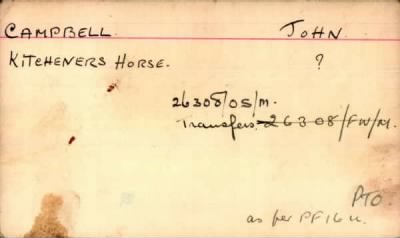 CAMPBELL. JOHN.
KITCHENERS HORSE. ?
26308/OS/M.
Transfers 26308/FW/M.
PTO.
as per PF16u.